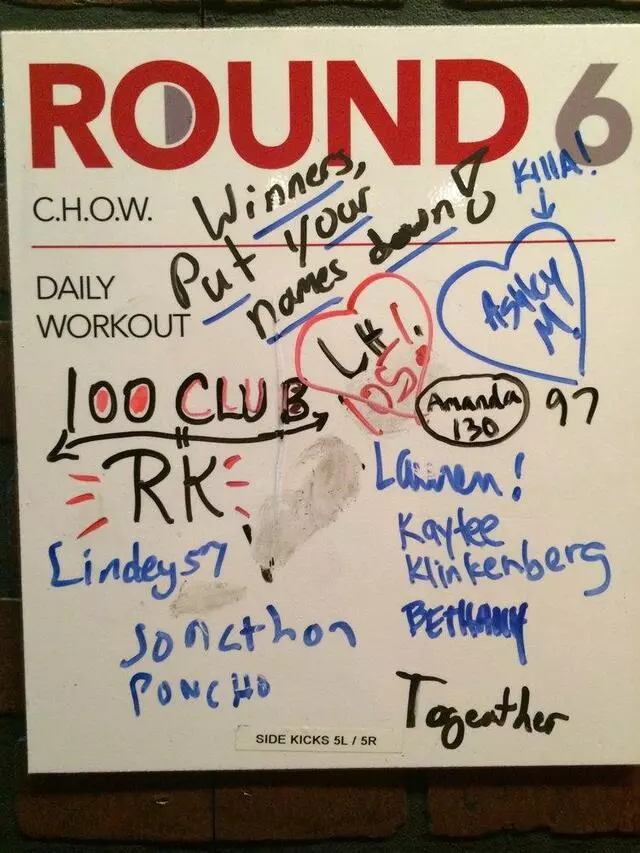 ROUND 6
C.H.O.W.
Winners,
Put Your
names down!
KILLA!
ASHLEY
M.
DAILY
WORKOUT
LH!
105!
100 CLUB
Amanda
130
97
RK
Lauren!
Lindey 57
Kaytee
Klinkenberg
BETHANY
Jonathon
PONCHO
Togeather
SIDE KICKS 5L / 5R